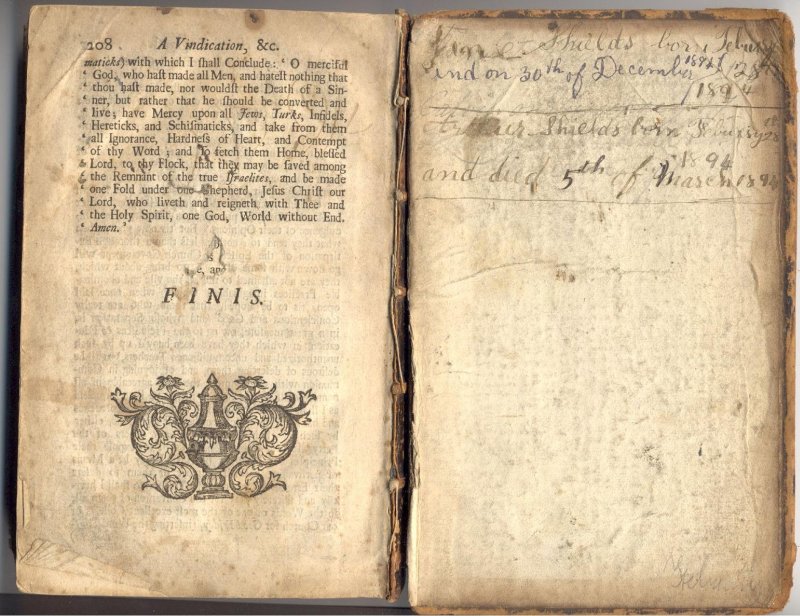 208 A Vindication, &c.
maticks) with which I shall Conclude: ‘ O merciful
‘ God, who hast made all Men, and hatest nothing that
‘ thou hast made, nor wouldst the Death of a Sin-
‘ ner, but rather that he should be converted and
‘ live; have Mercy upon all Jews, Turks, Infidels,
‘ Hereticks, and Schismaticks, and take from them
‘ all Ignorance, Hardness of Heart, and Contempt
‘ of thy Word; and so fetch them Home, blessed
‘ Lord, to thy Flock, that they may be saved among
‘ the Remnant of the true Israelites, and be made
‘ one Fold under one Shepherd, Jesus Christ our
‘ Lord, who liveth and reigneth with Thee and
‘ the Holy Spirit, one God, World without End.
‘ Amen.’
FINIS.
Shields born
and on 30th of December 28
1894
Arthur Shields born
1894
and died 5th of March